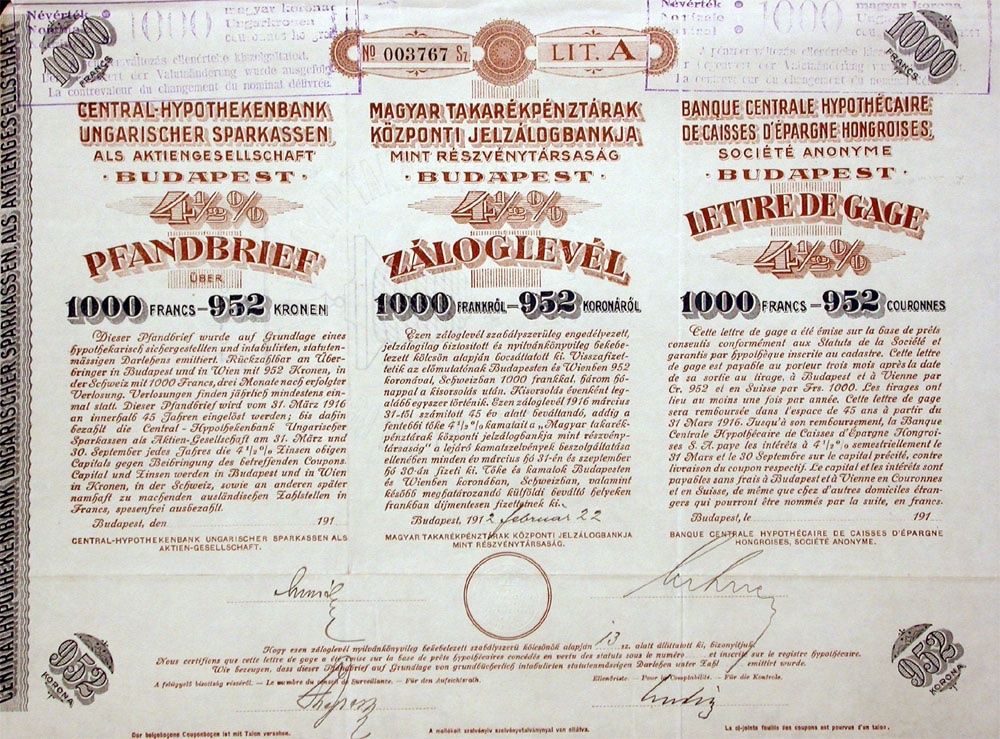 Névérték
Nominale
1000
magyar korona
Ungarkronen
couronnes hongroises
A részenváltozás ellenértéke kiszolgáltatott.
Der Gegenwert der Valutaänderung wurde ausgefolgt
La contrevaleur du changement du nominal délivrée.
1000
FRANCS
No 003767 Sz.
LIT. A
Névérték
Nominale
1000
magyar korona
1000
FRANCS
CENTRAL-HYPOTHEKENBANK UNGARISCHER SPARKASSEN ALS AKTIENGESELLSCHAFT
CENTRAL-HYPOTHEKENBANK
UNGARISCHER SPARKASSEN
ALS AKTIENGESELLSCHAFT
· BUDAPEST ·
4½%
PFANDBRIEF
ÜBER
1000 FRANCS – 952 KRONEN
Dieser Pfandbrief wurde auf Grundlage einer
hypothekarisch sichergestellten und intabulirten, statuten-
mässigen Darlehens emittiert. Rückzahlbar an Über-
bringer in Budapest und in Wien mit 952 Kronen, in
der Schweiz mit 1000 Francs, drei Monate nach erfolgter
Verlosung. Verlosungen finden jährlich mindestens ein-
mal statt. Dieser Pfandbrief wird vom 31. März 1916
an innerhalb 45 Jahren eingelöst werden; bis dahin
bezahlt die Central-Hypothekenbank Ungarischer
Sparkassen als Aktien-Gesellschaft am 31. März und
30. September jedes Jahres die 4½% Zinsen obigen
Capitals gegen Beibringung des betreffenden Coupons.
Capital und Zinsen werden in Budapest und in Wien
in Kronen, in der Schweiz, sowie an anderen später
namhaft zu machenden ausländischen Zahlstellen in
Francs, spesenfrei ausbezahlt.
Budapest, den 191
CENTRAL-HYPOTHEKENBANK UNGARISCHER SPARKASSEN ALS
AKTIEN-GESELLSCHAFT.
MAGYAR TAKARÉKPÉNZTÁRAK
KÖZPONTI JELZÁLOGBANKJA
MINT RÉSZVÉNYTÁRSASÁG
· BUDAPEST ·
4½%
ZÁLOGLEVÉL
1000 FRANKRÓL – 952 KORONÁRÓL
Ezen záloglevél szabályszerüleg engedélyezett,
jelzálogilag biztositott és nyilvánkönyvileg bekebe-
lezett kölcsön alapján bocsáttatott ki. Visszafizet-
tetik az előmutatónak Budapesten és Wienben 952
koronával, Schweizban 1000 frankkal, három hó-
nappal a kisorsolás után. Kisorsolás évenként leg-
alább egyszer történik. Ezen záloglevél 1916 március
31-től számitott 45 év alatt beváltandó, addig a
fentebbi tőke 4½% kamatait a „Magyar takarék-
pénztárak központi jelzálogbankja mint részvény-
társaság" a lejáró kamatszelvények beszolgáltatása
ellenében minden év március hó 31-én és szeptember
hó 30-án fizeti ki. Tőke és kamatok Budapesten
és Wienben koronában, Schweizban, valamint
később meghatározandó külföldi beváltó helyeken
frankban díjmentesen fizettetnek ki.
Budapest, 1912 február 22
MAGYAR TAKARÉKPÉNZTÁRAK KÖZPONTI JELZÁLOGBANKJA
MINT RÉSZVÉNYTÁRSASÁG.
BANQUE CENTRALE HYPOTHÉCAIRE
DE CAISSES D'ÉPARGNE HONGROISES,
SOCIÉTÉ ANONYME
· BUDAPEST ·
LETTRE DE GAGE
4½%
1000 FRANCS – 952 COURONNES
Cette lettre de gage a été émise sur la base de prêts
consentis conformément aux Statuts de la Société et
garantis par hypothèque inscrite au cadastre. Cette lettre
de gage est payable au porteur trois mois après la date
de sa sortie au tirage, à Budapest et à Vienne par
Cr. 952 et en Suisse par Frs. 1000. Les tirages ont
lieu au moins une fois par année. Cette lettre de gage
sera remboursée dans l'espace de 45 ans à partir du
31 Mars 1916. Jusqu'à son remboursement, la Banque
Centrale Hypothécaire de Caisses d'Épargne Hongroi-
ses S. A. paye les intérêts à 4½% semestriellement le
31 Mars et le 30 Septembre sur le capital précité, contre
livraison du coupon respectif. Le capital et les intérêts sont
payables sans frais à Budapest et à Vienne en Couronnes
et en Suisse, de même que chez d'autres domiciles étran-
gers qui pourront être nommés par la suite, en francs.
Budapest, le 191
BANQUE CENTRALE HYPOTHÉCAIRE DE CAISSES D'ÉPARGNE
HONGROISES, SOCIÉTÉ ANONYME.
Hogy ezen záloglevél nyilvánkönyvileg bekebelezett szabályszerü kölcsönök alapján 13 sz. alatt állittatott ki, bizonyitjuk.
Nous certifions que cette lettre de gage a été émise sur la base de prêts hypothécaires concédés en vertu des statuts sous le numéro et inscrits sur le registre hypothécaire.
Wir bezeugen, dass dieser Pfandbrief auf Grundlage von grundbücherlich intabulirten statutenmässigen Darlehen unter Zahl emittirt wurde.
A felügyelő bizottság részéről. – Le membre du conseil de Surveillance. – Für den Aufsichtsrath.
Ellenőrizte. – Pour la Comptabilité. – Für die Kontrole.
952
KORONA
952
KORONA
Der beigebogene Couponbogen ist mit Talon versehen.
A mellékelt szelvényív szelvényutalvánnyal van ellátva.
La ci-jointe feuille des coupons est pourvue d'un talon.